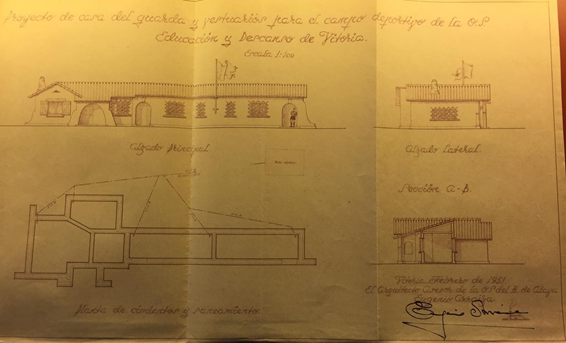 Proyecto de casa del guarda y vestuarios para el campo deportivo de la O.S.
Educación y Descanso de Vitoria.
Escala 1:100
Alzado Principal
Alzado Lateral.
Sección A-B.
Planta de cimientos y saneamiento
Vitoria Febrero de 1951
El Arquitecto Asesor de la O.S. del H.
Eugenio